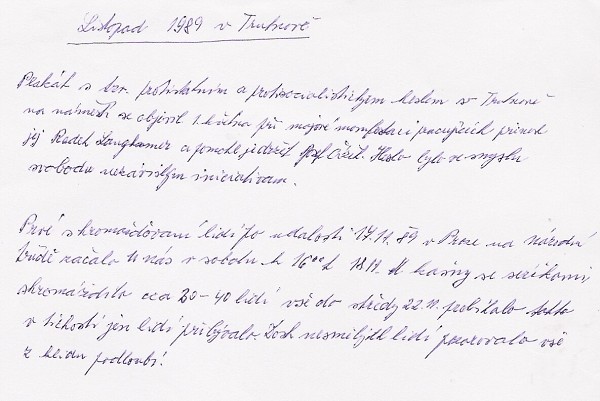 Listopad 1989 v Trutnově
Plakát s tzv. protistátním a protisocialistickým heslem v Trutnově
na náměstí se objevil 1. května při májové manifestaci pracujících přinesl
jej Radek Langhamer a pomohl jej držet Josef Ožil. Heslo bylo ve smyslu
svobodu nezávislým iniciativám.
Prvé shromažďování lidí po událostí 17.11.89 v Praze na národní
třídě začalo u nás v sobotu k 16°°h 18.11. U kašny se svíčkami,
shromáždilo cca 30-40 lidí vše do středy 22.11. probíhalo takto
v tichosti jen lidí přibývalo. Dost nesmělých lidí pozorovalo vše
z klidu podloubí!